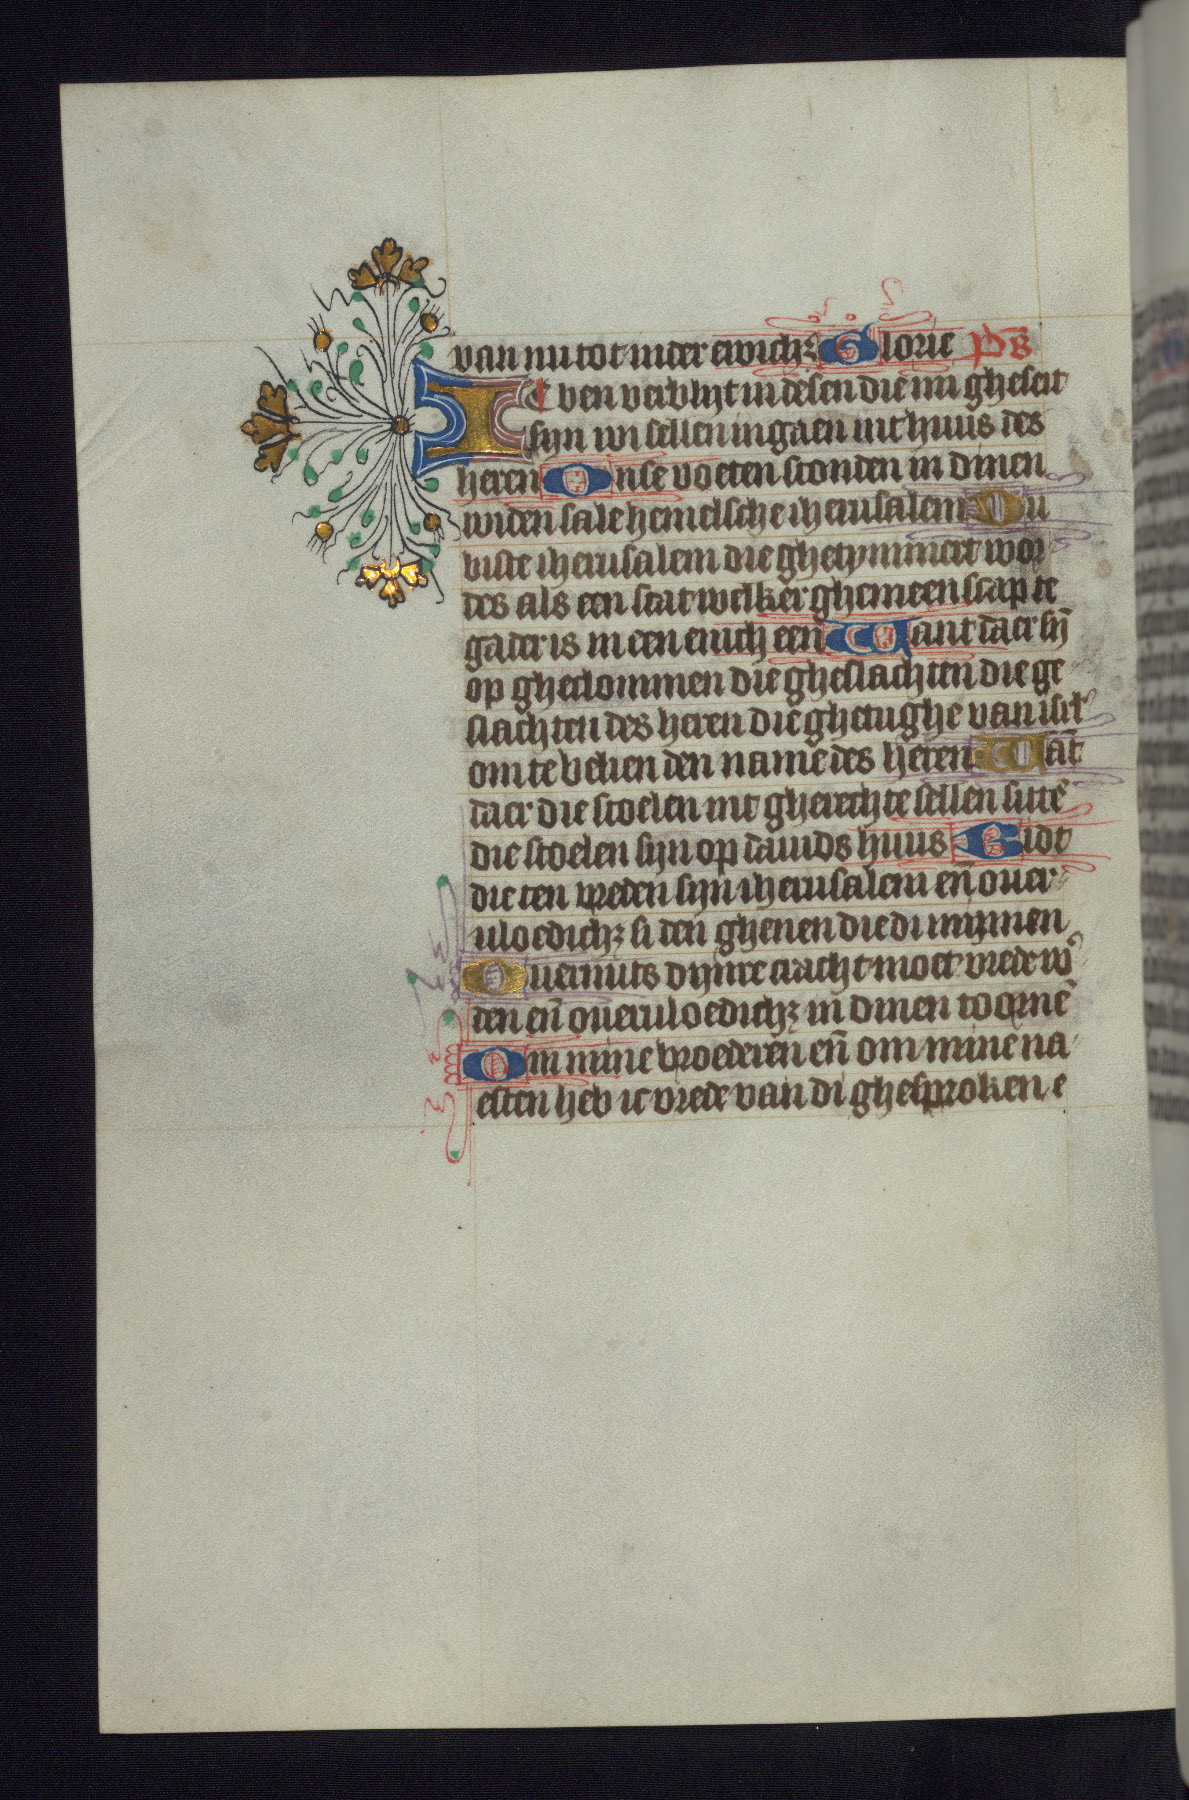 van nu tot in der ewich₃ Glorie ps̄
Ic ben verblijt in desen die mi gheseit
sijn wi sellen ingaen int huus des
heren Onse voeten stonden in dinen
widen sale hemelsche iherusalem Du
biste iherusalem die ghetymmert wor
des als een stat welker ghemeenscap te
gader is in een enich een Want daer sij̄
op gheclommen die gheslachten die ge
slachten des heren die ghetughe van isrl̄
om te belien den name des heren Wāt
daer die stoelen int gherechte sellen sittē
die stoelen sijn op dauids huus Bidt
die ten vreden sijn iherusalem en̄ ouer
uloedich₃ si den ghenen die di minnen
Ouermits dijnre cracht moet vrede wor
den en̄ oueruloedich₃ in dinen toornē
Om mine broederen en̄ om mine na
esten heb ic vrede van di ghesproken e